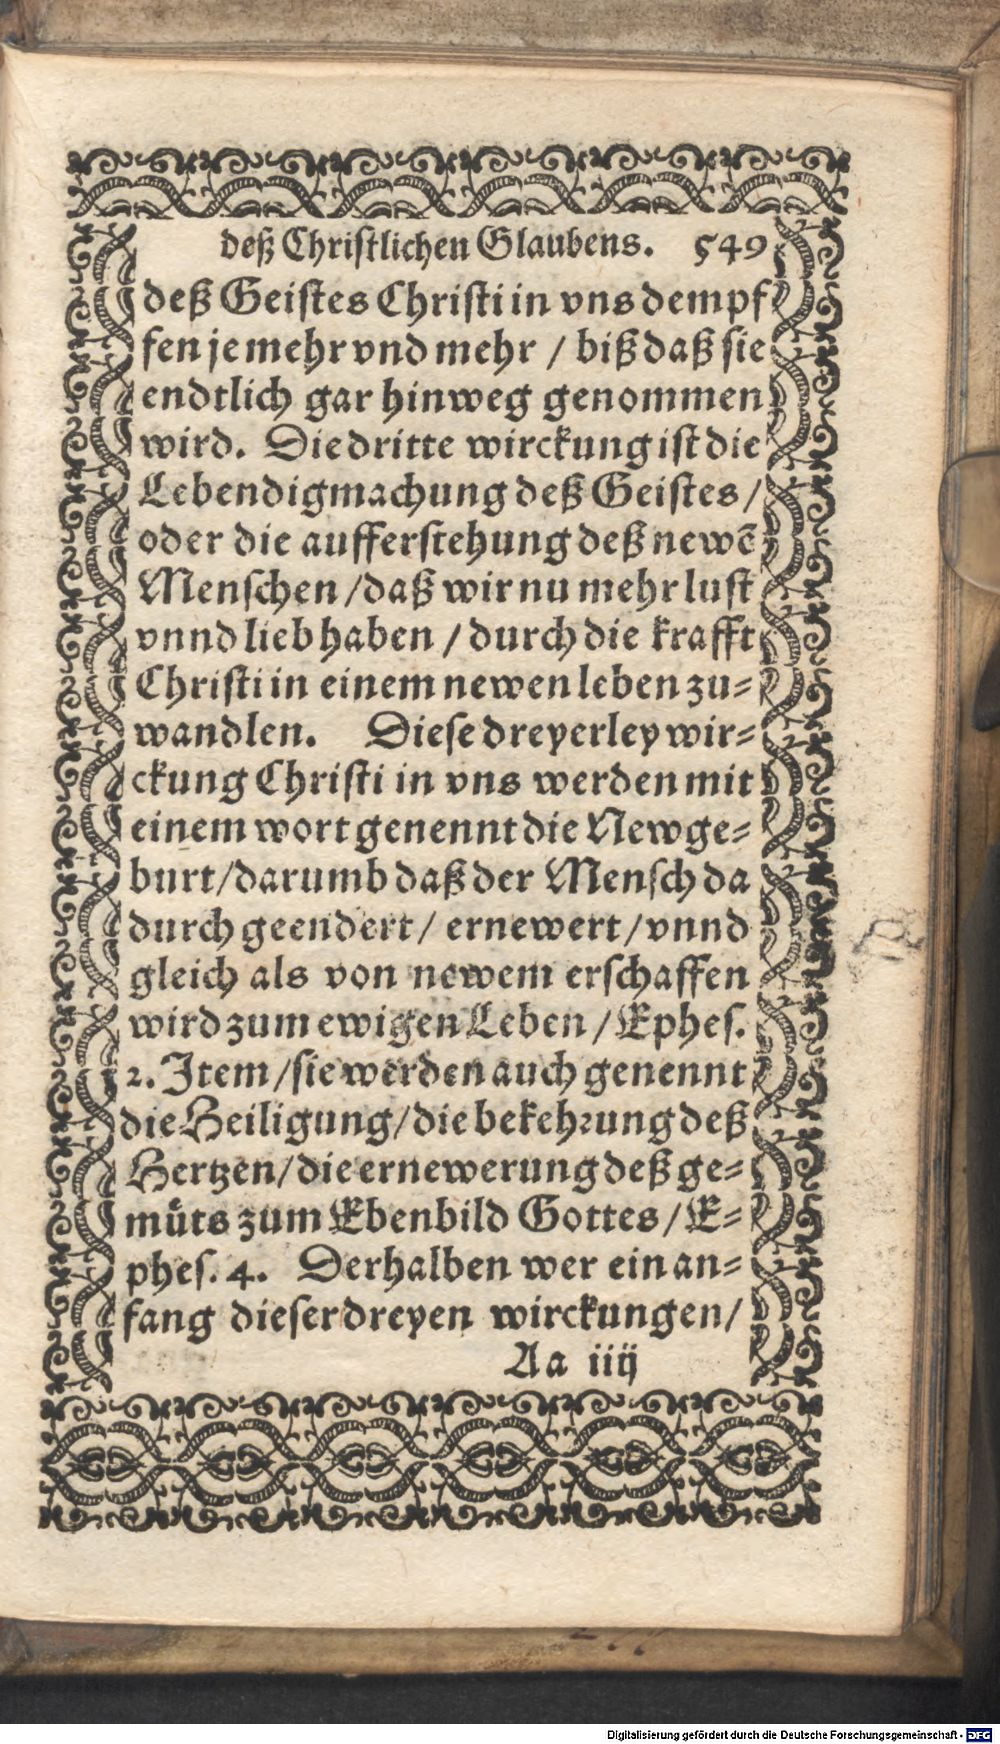 deß Christlichen Glaubens. 549
deß Geistes Christi in vns dempf
fen je mehr vnd mehr / biß daß sie
endtlich gar hinweg genommen
wird. Die dritte wirckung ist die
Lebendigmachung deß Geistes /
oder die aufferstehung deß newē
Menschen / daß wir nu mehr lust
vnnd lieb haben / durch die krafft
Christi in einem newen leben zu-
wandlen. Diese dreyerley wir-
ckung Christi in vns werden mit
einem wort genennt die Newge-
burt / darumb daß der Mensch da
durch geendert / ernewert / vnnd
gleich als von newem erschaffen
wird zum ewigen Leben / Ephes.
2. Item / sie werden auch genennt
die Heiligung / die bekehrung deß
Hertzen / die ernewerung deß ge-
müts zum Ebenbild Gottes / E-
phes. 4. Derhalben wer ein an-
fang dieser dreyen wirckungen /
Aa iiij
Digitalisierung gefördert durch die Deutsche Forschungsgemeinschaft - DFG